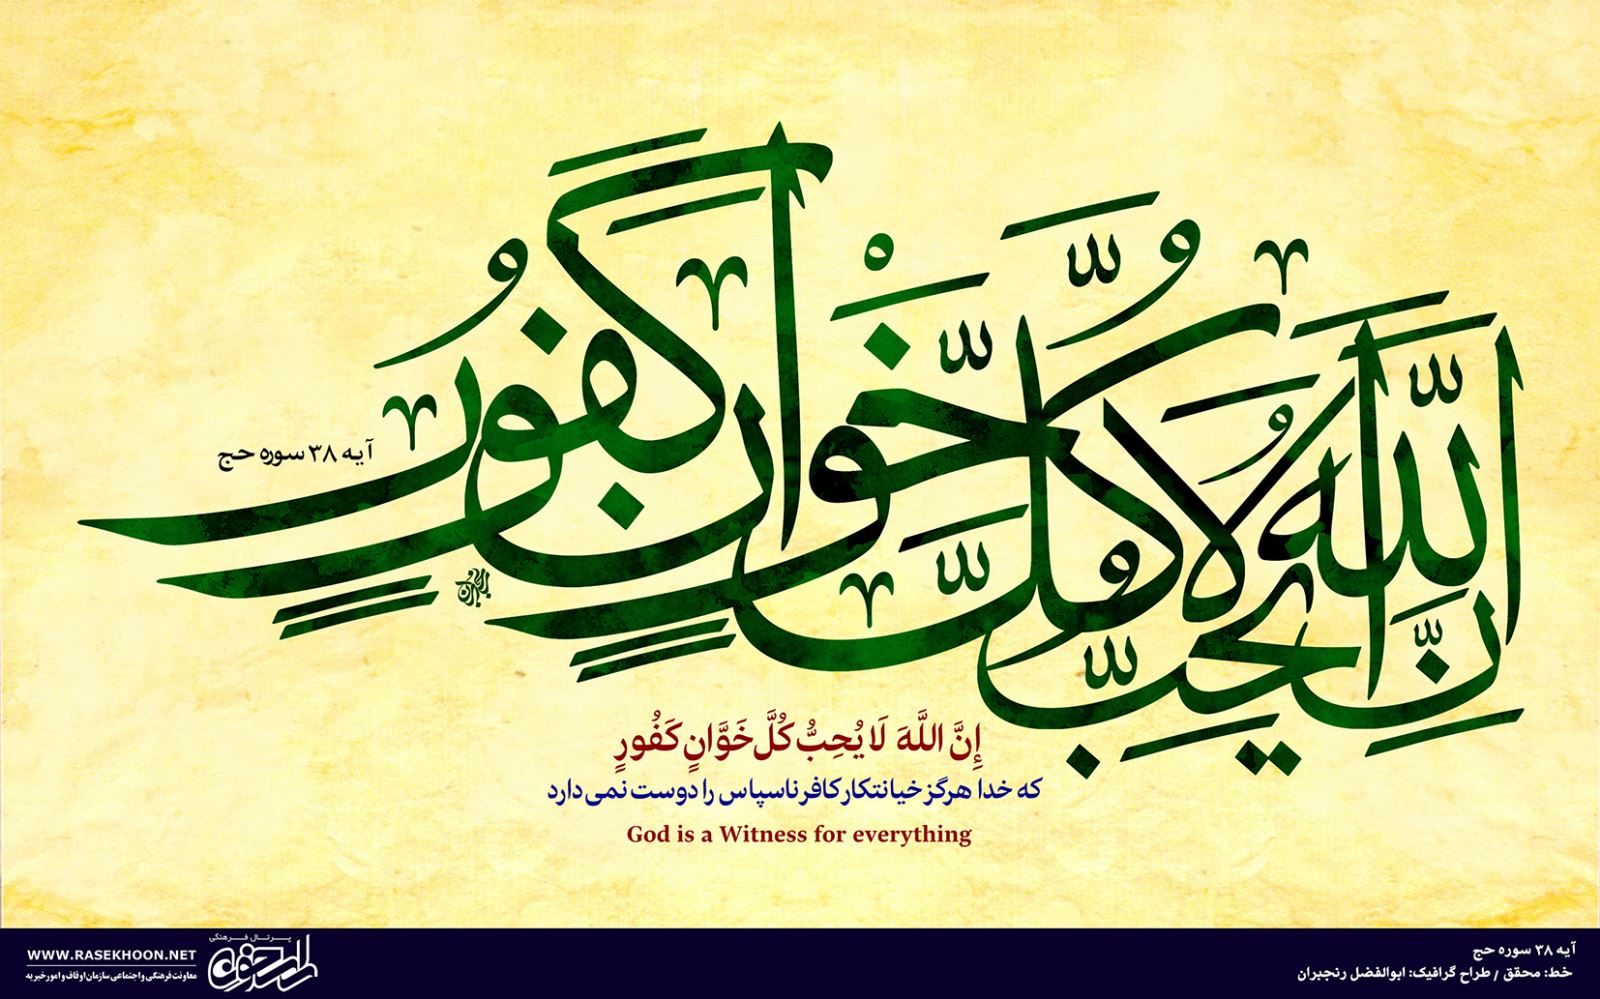 إِنَّ اللَّهَ لَا يُحِبُّ كُلَّ خَوَّانٍ كَفُورٍ
آیه ۳۸ سوره حج
إِنَّ اللَّهَ لَا يُحِبُّ كُلَّ خَوَّانٍ كَفُورٍ
که خدا هرگز خیانتکار کافر ناسپاس را دوست نمی‌دارد
God is a Witness for everything
آیه ۳۸ سوره حج
خط: محقق / طراح گرافیک: ابوالفضل رنجبران
پرتال فرهنگی
راسخون
WWW.RASEKHOON.NET
معاونت فرهنگی و اجتماعی سازمان اوقاف و امور خیریه